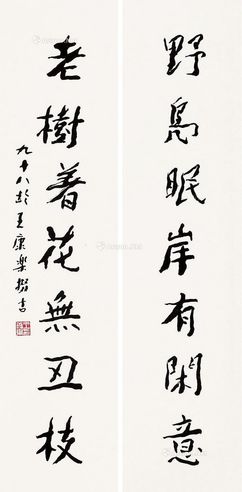 野鳥眠岸有閑意
老樹着花無丑枝
九十八齡王康樂撰書